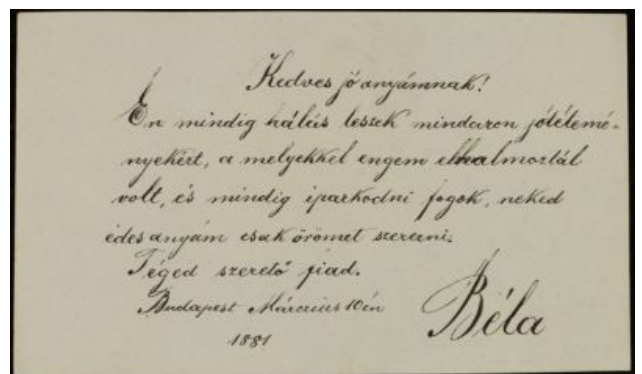 Kedves jó anyámnak!
Én mindig hálás leszek mindazon jótétemé-
nyekért, a melyekkel engem elhalmoztál
volt, és mindig iparkodni fogok, neked
édes anyám csak örömet szerezni.
Téged szerető fiad.
Budapest Március 10én
1881
Béla